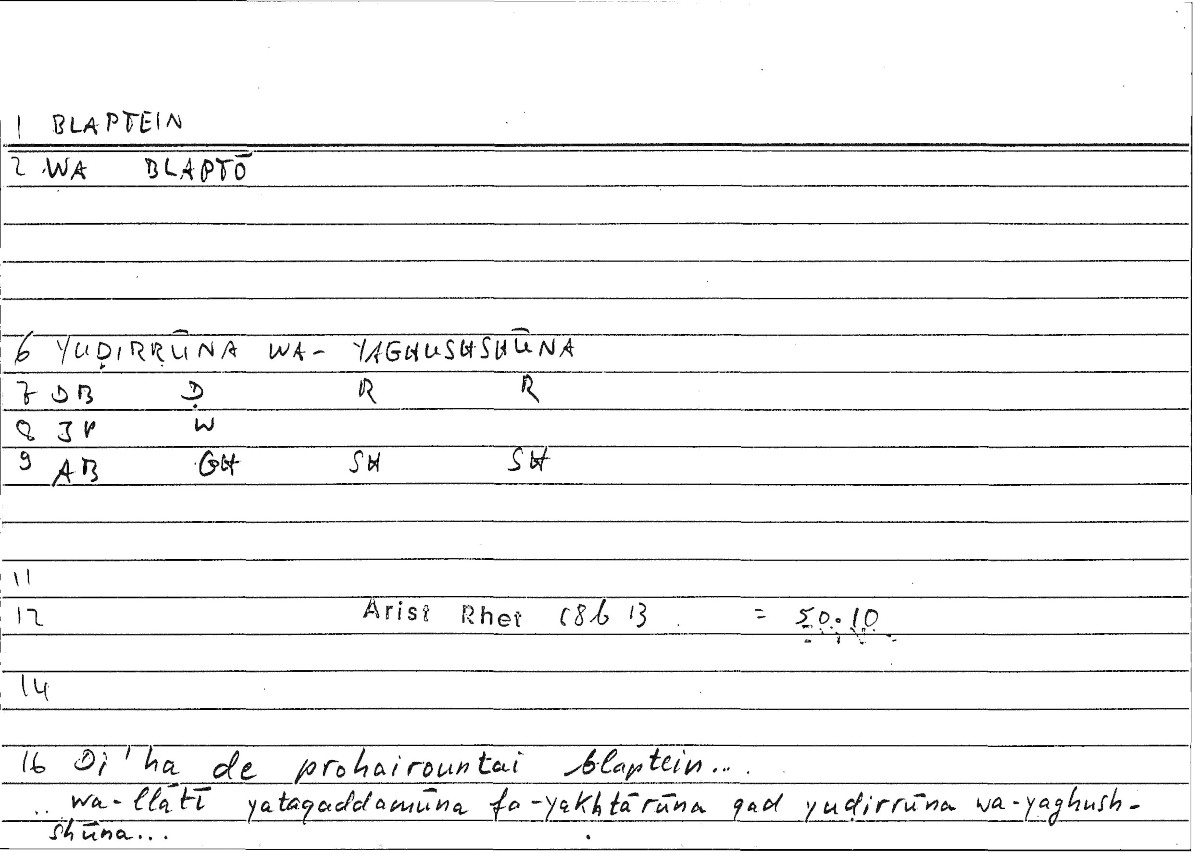 1 BLAPTEIN
2 WA BLAPTŌ
6 YUḌIRRŪNA WA- YAGHUSHSHŪNA
7 DB Ḍ R R
8 JP W
9 AB GH SH SH
11
12 Arist Rhet 68b 13 = 50.10
14
16 Di'ha de prohairountai blaptein...
.. wa-llātī yataqaddamūna fa-yakhtārūna qad yuḍirrūna wa-yaghush-
shūna...